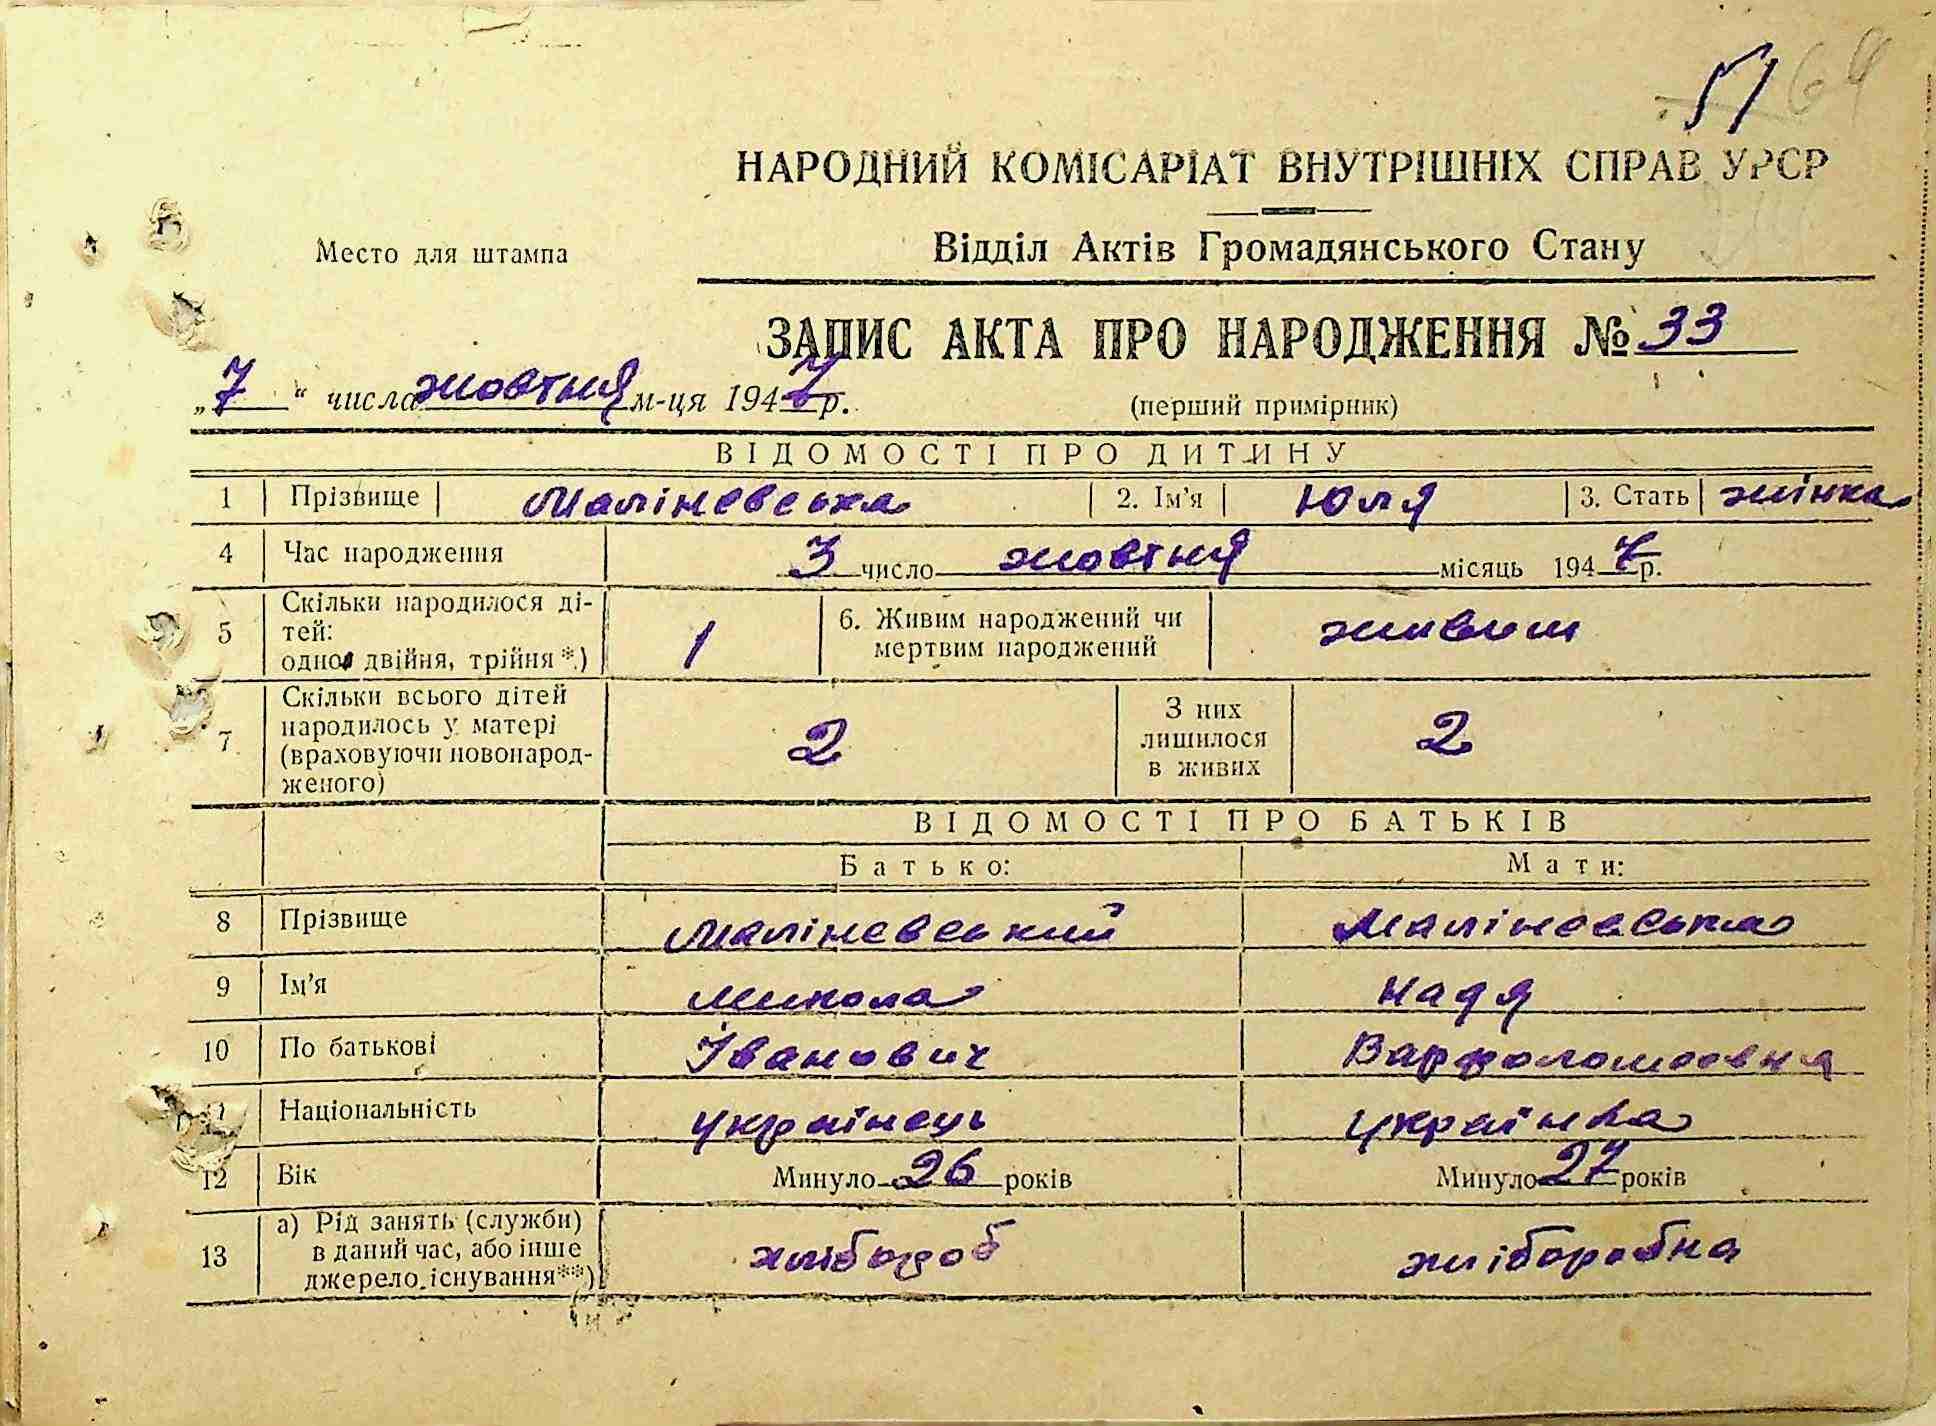 51 64
НАРОДНИЙ КОМІСАРІАТ ВНУТРІШНІХ СПРАВ УРСР
Место для штампа
Відділ Актів Громадянського Стану
ЗАПИС АКТА ПРО НАРОДЖЕННЯ № 33
„7“ числа жовтня м-ця 1947 р.
(перший примірник)
ВІДОМОСТІ ПРО ДИТИНУ
1 Прізвище Маліневська 2. Ім'я Юля 3. Стать жінка
4 Час народження 3 число жовтня місяць 1947 р.
5 Скільки народилося ді-
тей:
одно, двійня, трійня*) 1
6. Живим народжений чи
мертвим народжений живим
7 Скільки всього дітей
народилось у матері
(враховуючи новонарод-
женого) 2
З них
лишилося
в живих 2
ВІДОМОСТІ ПРО БАТЬКІВ
Батько: Мати:
8 Прізвище Маліневський Маліневська
9 Ім'я Микола Надя
10 По батькові Іванович Варфоломеевна
11 Національність українець українка
12 Вік Минуло 26 років Минуло 27 років
13 а) Рід занять (служби)
в даний час, або інше
джерело існування**) хлібороб хліборобка